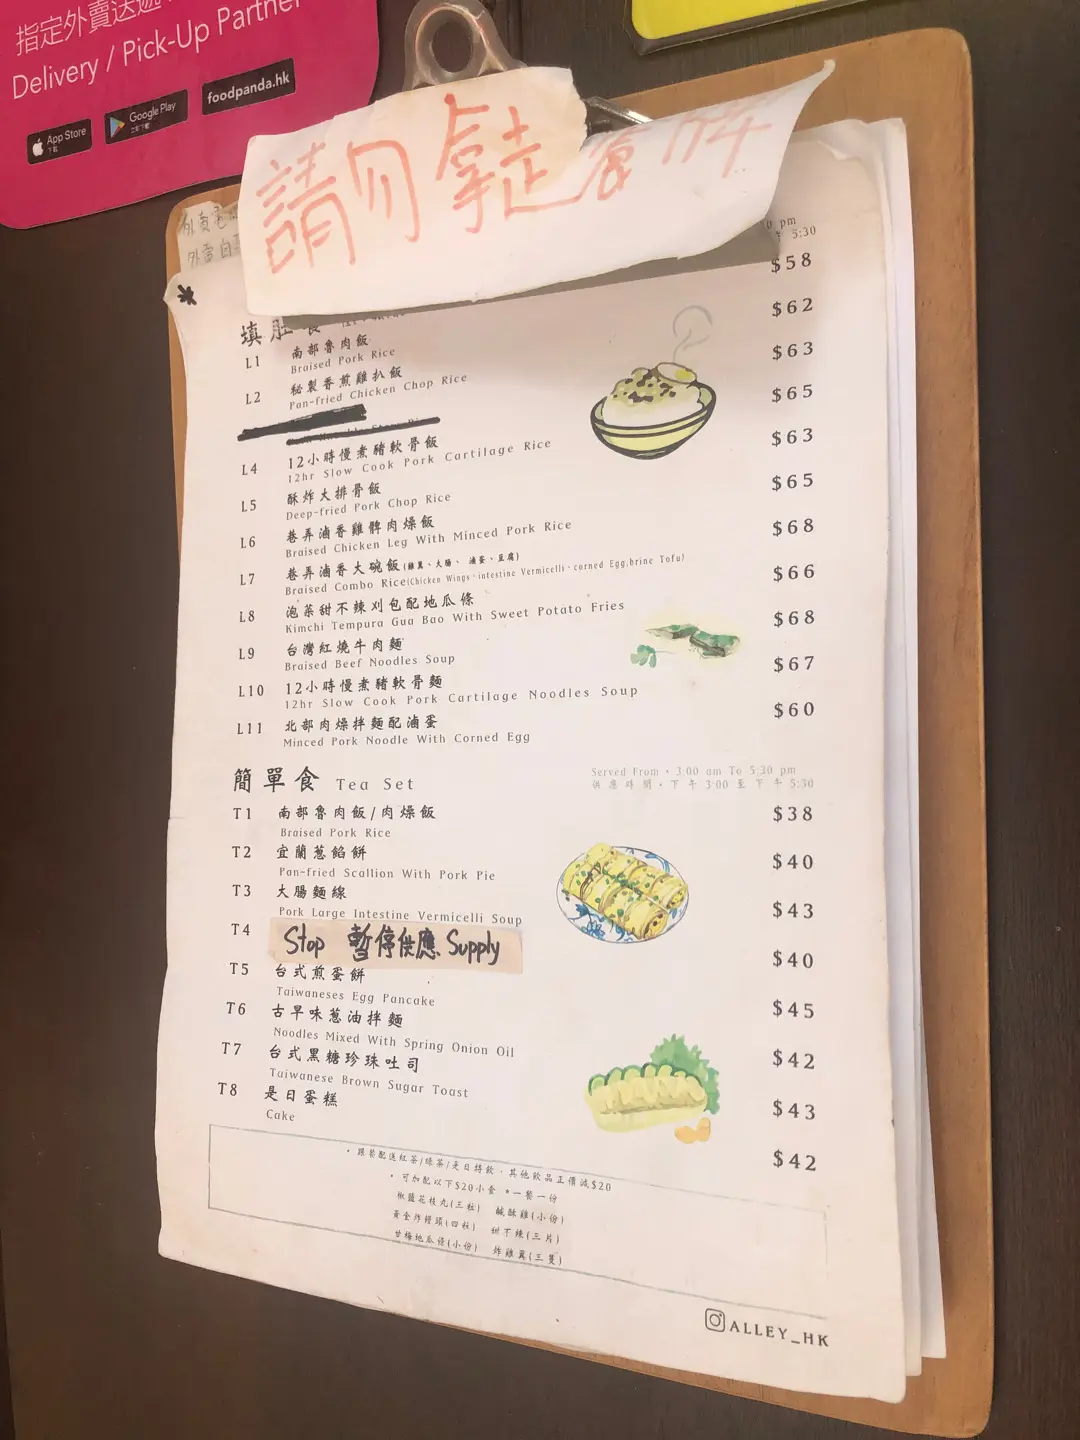 指定外賣送遞
Delivery / Pick-Up Partner
App Store
下載
Google Play
立即下載
foodpanda.hk
請勿拿走餐牌
外賣
外賣自
pm
5:30
填肚食
L1 南部魯肉飯 $58
Braised Pork Rice
L2 秘製香煎雞扒飯 $62
Pan-fried Chicken Chop Rice
$63
L4 12小時慢煮豬軟骨飯 $65
12hr Slow Cook Pork Cartilage Rice
L5 酥炸大排骨飯 $63
Deep-fried Pork Chop Rice
L6 巷弄滷香雞髀肉燥飯 $65
Braised Chicken Leg With Minced Pork Rice
L7 巷弄滷香大碗飯(雞翼、大腸、滷蛋、豆腐) $68
Braised Combo Rice(Chicken Wings、intestine Vermicelli、corned Egg,brine Tofu)
L8 泡菜甜不辣刈包配地瓜條 $66
Kimchi Tempura Gua Bao With Sweet Potato Fries
L9 台灣紅燒牛肉麵 $68
Braised Beef Noodles Soup
L10 12小時慢煮豬軟骨麵 $67
12hr Slow Cook Pork Cartilage Noodles Soup
L11 北部肉燥拌麵配滷蛋 $60
Minced Pork Noodle With Corned Egg
簡單食 Tea Set
Served From・3:00 am To 5:30 pm
供應時間・下午3:00至下午5:30
T1 南部魯肉飯/肉燥飯 $38
Braised Pork Rice
T2 宜蘭蔥餡餅 $40
Pan-fried Scallion With Pork Pie
T3 大腸麵線 $43
Pork Large Intestine Vermicelli Soup
T4 Stop 暫停供應 Supply $40
T5 台式煎蛋餅 $45
Taiwaneses Egg Pancake
T6 古早味蔥油拌麵 $42
Noodles Mixed With Spring Onion Oil
T7 台式黑糖珍珠吐司 $43
Taiwanese Brown Sugar Toast
T8 是日蛋糕 $42
Cake
・跟餐配送紅茶/綠茶/是日特飲，其他飲品正價減$20
・可加配以下$20小食 *一餐一份
椒鹽花枝丸(三粒) 鹹酥雞(小份)
黃金炸饅頭(四粒) 甜不辣(三片)
甘梅地瓜條(小份) 炸雞翼(三隻)
ALLEY_HK